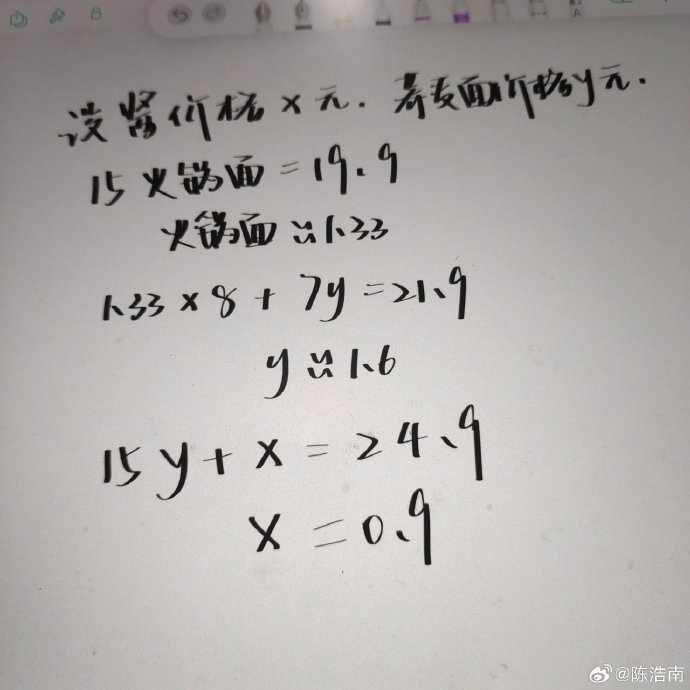 设酱价格x元.荞麦面价格y元.
15火锅面=19.9
火锅面≈1.33
1.33×8+7y=21.9
y≈1.6
15y+x=24.9
x=0.9
@陈浩南